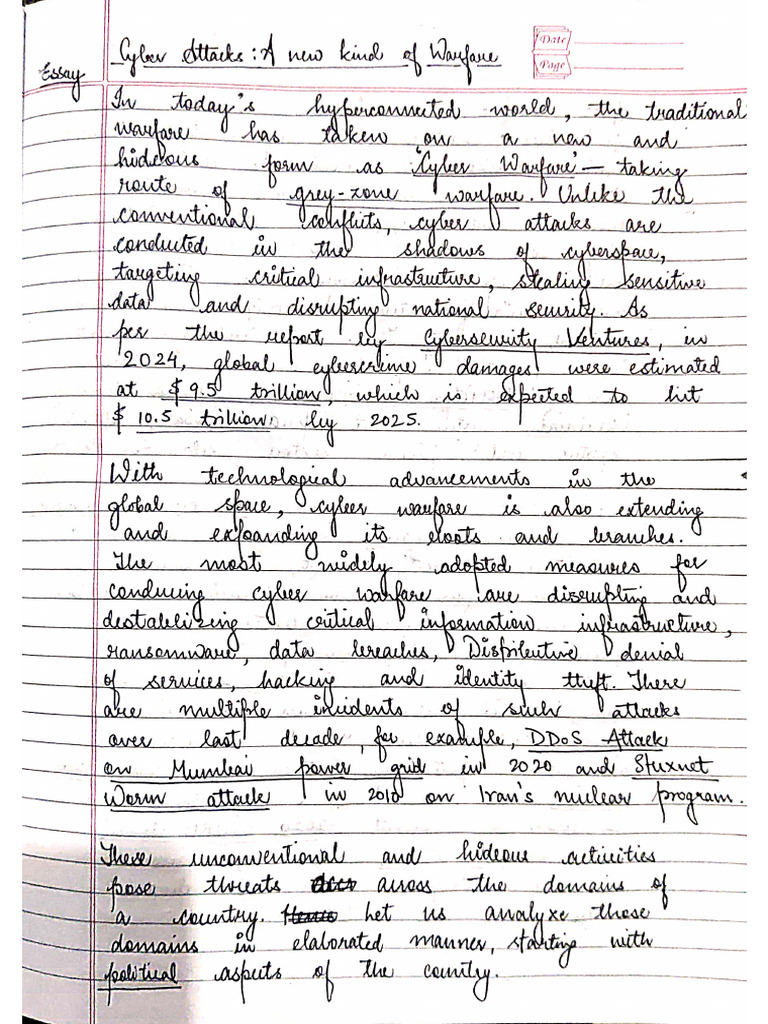 Cyber Attacks: A new kind of Warfare
Date
Page
Essay
In today's hyperconnected world, the traditional
warfare has taken on a new and
hideous form as 'Cyber Warfare' – taking
route of grey-zone warfare. Unlike the
conventional conflicts, cyber attacks are
conducted in the shadows of cyberspace,
targeting critical infrastructure, stealing sensitive
data and disrupting national security. As
per the report by Cybersecurity Ventures, in
2024, global cybercrime damages were estimated
at $ 9.5 trillion, which is expected to hit
$ 10.5 trillion by 2025.
With technological advancements in the
global space, cyber warfare is also extending
and expanding its roots and branches.
The most widely adopted measures for
conducing cyber warfare are disrupting and
destabilizing critical information infrastructure,
ransomware, data breaches, Distributive denial
of services, hacking and identity theft. There
are multiple incidents of such attacks
over last decade, for example, DDoS Attack
on Mumbai power grid in 2020 and Stuxnet
Worm attack in 2010 on Iran's nuclear program.
These unconventional and hideous activities
pose threats across the domains of
a country. Let us analyze these
domains in elaborated manner, starting with
political aspects of the country.